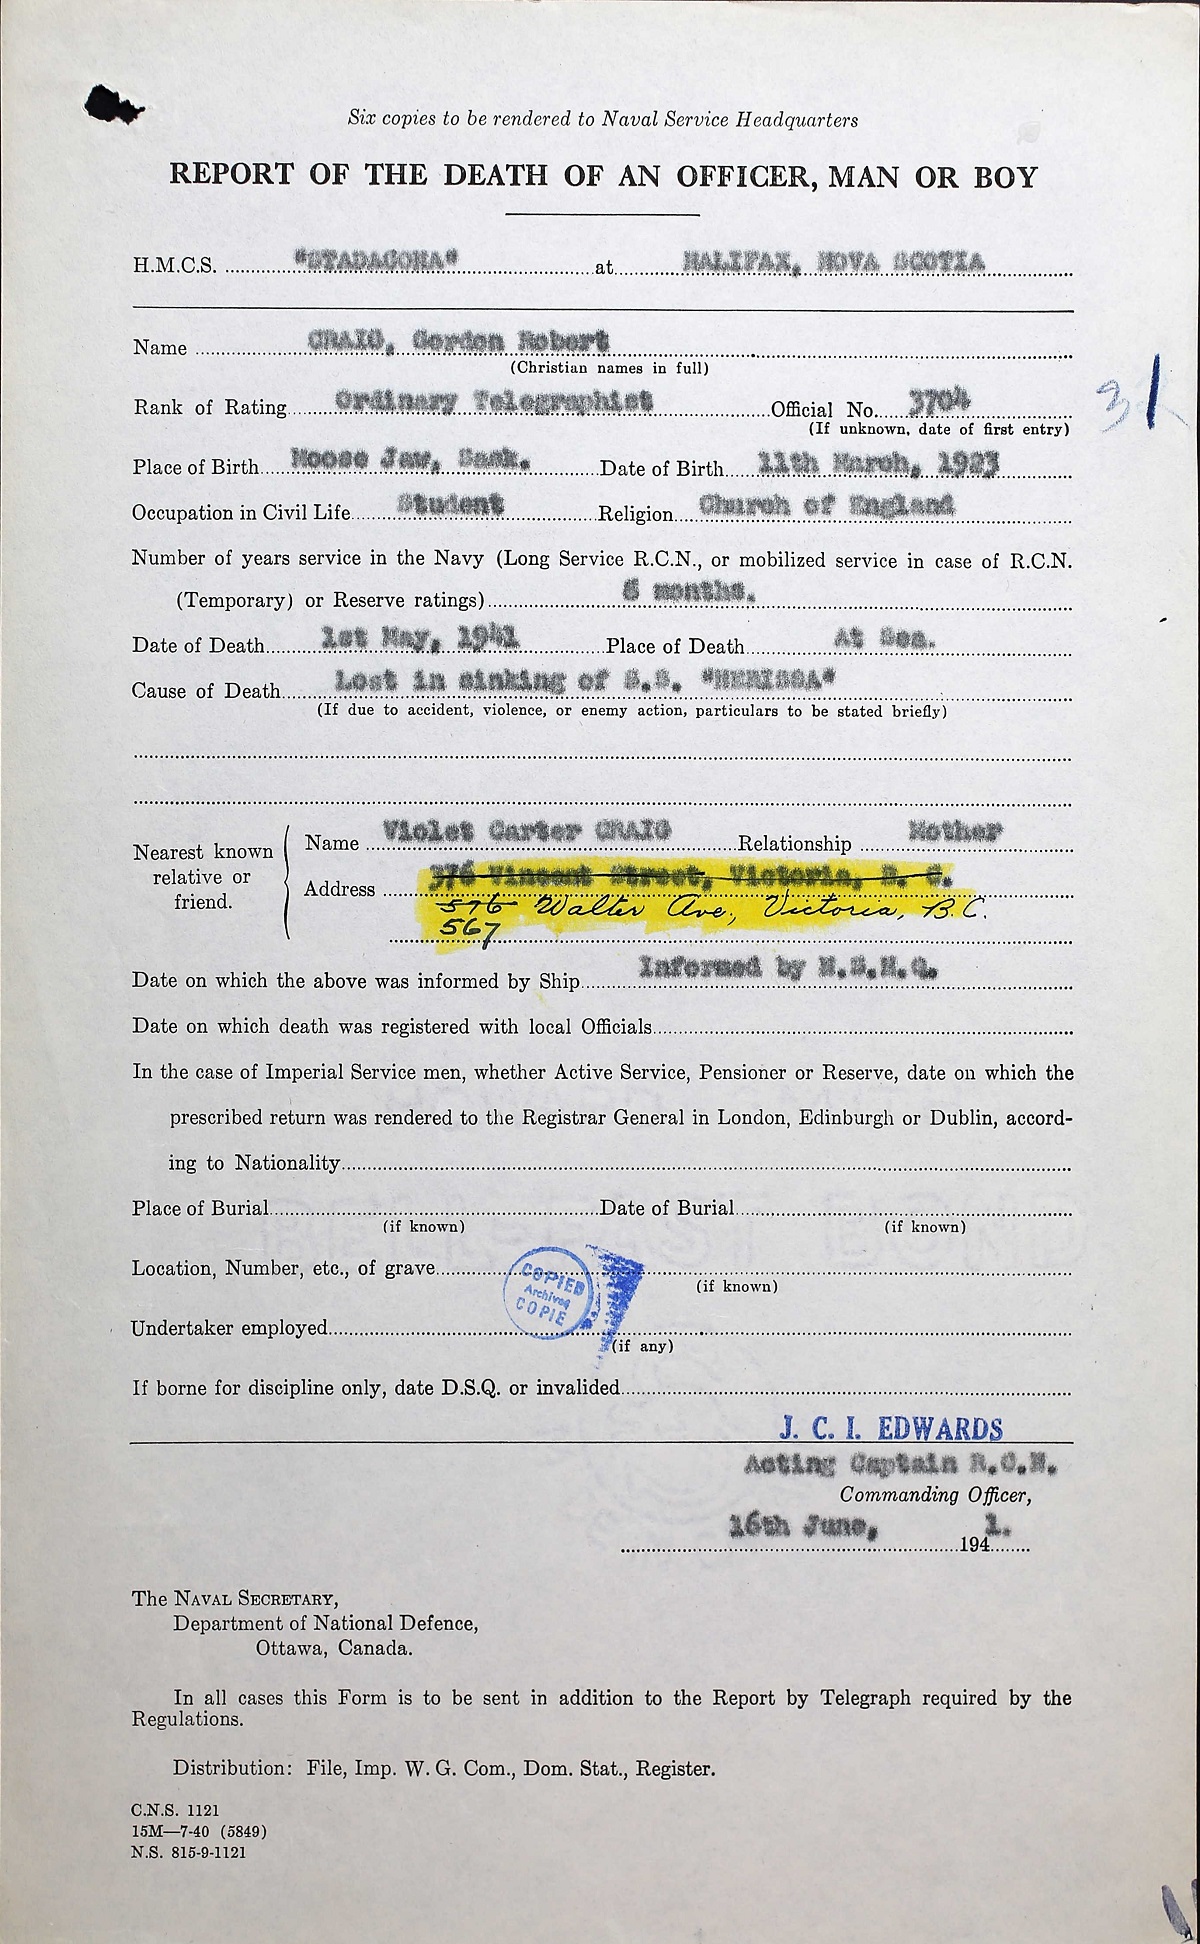 Six copies to be rendered to Naval Service Headquarters
REPORT OF THE DEATH OF AN OFFICER, MAN OR BOY
H.M.C.S. "STADACONA" at HALIFAX, NOVA SCOTIA
Name CRAIG, Gordon Robert
(Christian names in full)
Rank of Rating Ordinary Telegraphist Official No. 3704
(If unknown, date of first entry)
31
Place of Birth Moose Jaw, Sask. Date of Birth 11th March, 1923
Occupation in Civil Life Student Religion Church of England
Number of years service in the Navy (Long Service R.C.N., or mobilized service in case of R.C.N.
(Temporary) or Reserve ratings) months.
Date of Death 1st May, 1941 Place of Death At Sea.
Cause of Death Lost in sinking of S.S. "NERISSA"
(If due to accident, violence, or enemy action, particulars to be stated briefly)
Nearest known relative or friend.
Name Violet Carter CRAIG Relationship Mother
Address 376 Vincent Street, Victoria, B. C.
576 Walter Ave., Victoria, B.C.
567
Date on which the above was informed by Ship Informed by N.S.H.Q.
Date on which death was registered with local Officials
In the case of Imperial Service men, whether Active Service, Pensioner or Reserve, date on which the
prescribed return was rendered to the Registrar General in London, Edinburgh or Dublin, accord-
ing to Nationality
Place of Burial Date of Burial
(if known) (if known)
Location, Number, etc., of grave
(if known)
COPIED
Archives
COPIE
Undertaker employed
(if any)
If borne for discipline only, date D.S.Q. or invalided
J. C. I. EDWARDS
Acting Captain R.C.N.
Commanding Officer,
16th June, 1941.
The NAVAL SECRETARY,
Department of National Defence,
Ottawa, Canada.
In all cases this Form is to be sent in addition to the Report by Telegraph required by the
Regulations.
Distribution: File, Imp. W. G. Com., Dom. Stat., Register.
C.N.S. 1121
15M—7-40 (5849)
N.S. 815-9-1121